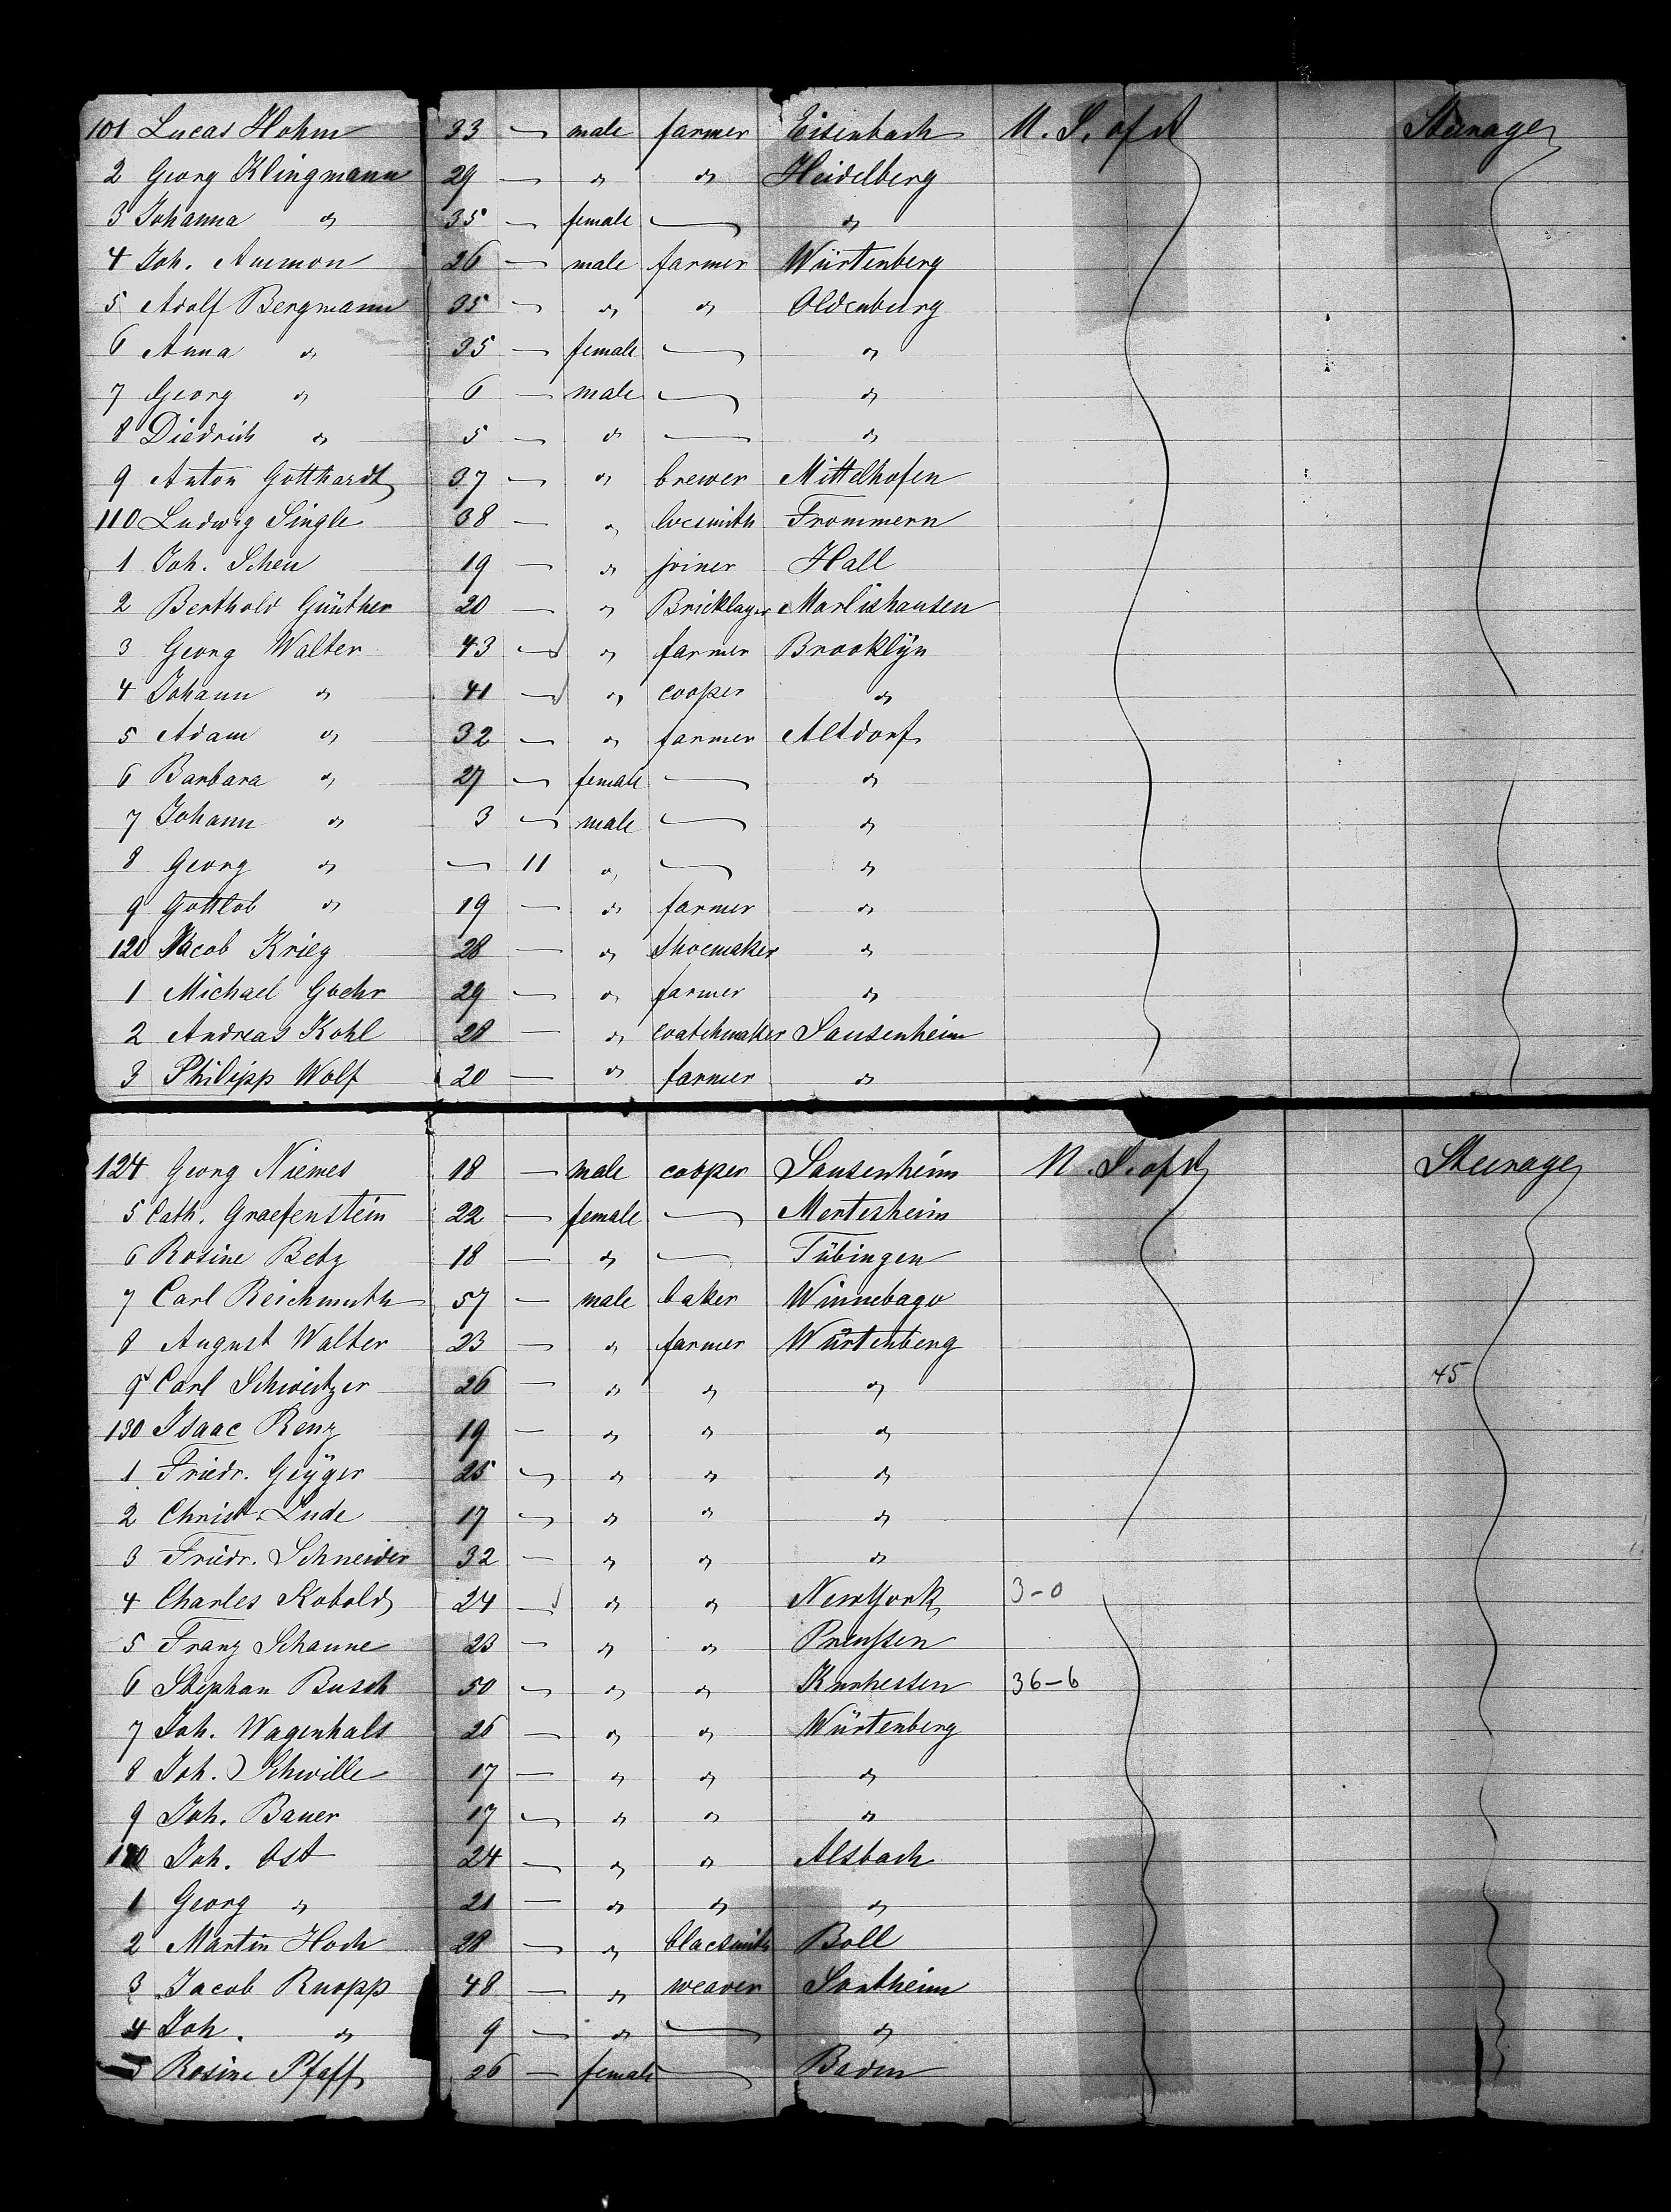 101 Lucas Hohm 33 — male farmer Eisenbach U. S. of A Steerage
2 Georg Klingmann 29 — " " Heidelberg
3 Johanna " 35 — female — "
4 Joh. Ammon 26 — male farmer Würtenberg
5 Adolf Bergmann 35 — " " Oldenburg
6 Anna " 35 — female — "
7 Georg " 6 — male — "
8 Diedrich " 5 — " — "
9 Anton Gotthardt 37 — " brewer Mittelhofen
110 Ludwig Single 38 — " locsmith Frommern
1 Joh. Scheu 19 — " joiner Hall
2 Berthold Günther 20 — " Bricklayer Marlishausen
3 Georg Walter 43 — " farmer Brooklÿn
4 Johann " 41 — " cooper "
5 Adam " 32 — " farmer Altdorf
6 Barbara " 27 — female — "
7 Johann " 3 — male — "
8 Georg " — 11 " — "
9 Gottlob " 19 — " farmer "
120 Jacob Krieg 28 — " Shoemaker "
1 Michael Goehr 29 — " farmer "
2 Andreas Kohl 28 — " watchmaker Sausenheim
3 Philipp Wolf 20 — " farmer "
124 Georg Niemes 18 — male cooper Sausenheim U. S. of A Steerage
5 Cath. Graefenstein 22 — female — Mertesheim
6 Rosine Betz 18 — " — Tübingen
7 Carl Reichmuth 57 — male baker Winnebago
8 August Walter 23 — " farmer Würtenberg
9 Carl Schweitzer 26 — " " " 45
130 Isaac Renz 19 — " " "
1 Friedr. Geÿger 25 — " " "
2 Christ. Lude 17 — " " "
3 Friedr. Schneider 32 — " " "
4 Charles Kobold 24 — " " NewYork 3-0
5 Franz Schaune 23 — " " Preussen
6 Stephan Busch 50 — " " Kurhessen 36-6
7 Joh. Wagenhals 26 — " " Würtenberg
8 Joh. Schwille 17 — " " "
9 Joh. Bauer 17 — " " "
140 Joh. Ost 24 — " " Alsbach
1 Georg " 21 — " " "
2 Martin Hoch 28 — " blacsmith Boll
3 Jacob Rupp 48 — " weaver Sontheim
4 Joh. " 9 — " — "
5 Rosine Pfaff 26 — female — Baden